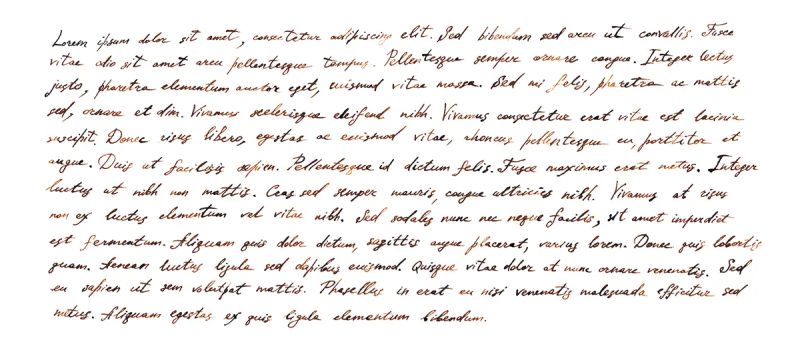 Lorem ipsum dolor sit amet, consectetur adipiscing elit. Sed bibendum sed arcu ut convallis. Fusce
vitae odio sit amet arcu pellentesque tempus. Pellentesque semper ornare congue. Integer lectus
justo, pharetra elementum auctor eget, euismod vitae massa. Sed mi felis, pharetra ac mattis
sed, ornare et dim. Vivamus scelerisque eleifend nibh. Vivamus consectetur erat vitae est lacinia
suscipit. Donec risus libero, egestas ac euismod vitae, rhoncus pellentesque eu, porttitor et
augue. Duis ut facilisis sapien. Pellentesque id dictum felis. Fusce maximus erat metus. Integer
luctus ut nibh non mattis. Cras sed semper mauris, congue ultricies nibh. Vivamus at risus
non ex luctus elementum vel vitae nibh. Sed sodales nunc nec neque facilis, sit amet imperdiet
est fermentum. Aliquam quis dolor dictum, sagittis augue placerat, varius lorem. Donec quis lobortis
quam. Aenean luctus ligula sed dapibus euismod. Quisque vitae dolor at nunc ornare venenatis. Sed
eu sapien ut sem volutpat mattis. Phasellus in erat eu nisi venenatis malesuada efficitur sed
metus. Aliquam egestas ex quis ligula elementum bibendum.